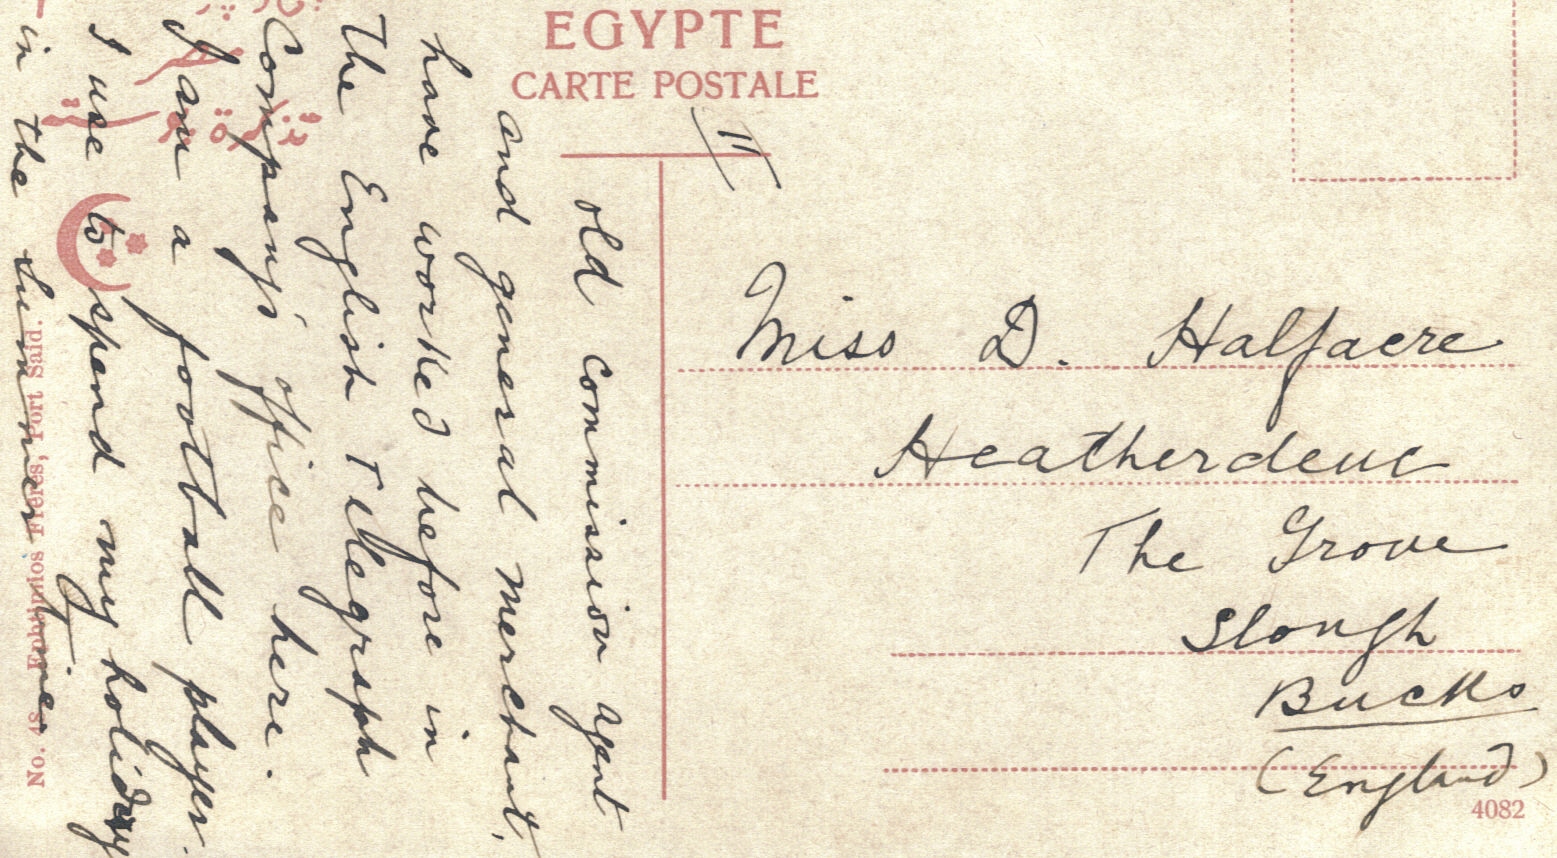 EGYPTE
CARTE POSTALE
II
old commission agent
and general merchant,
have worked before in
the English Telegraph
Company's office here.
I am a football player.
I use to spend my holiday
in the summer time
Miss D. Halfacre
Heatherdene
The Grove
Slough
Bucks
(England)
4082
No. 48 Ephtimios Frères, Port Said.